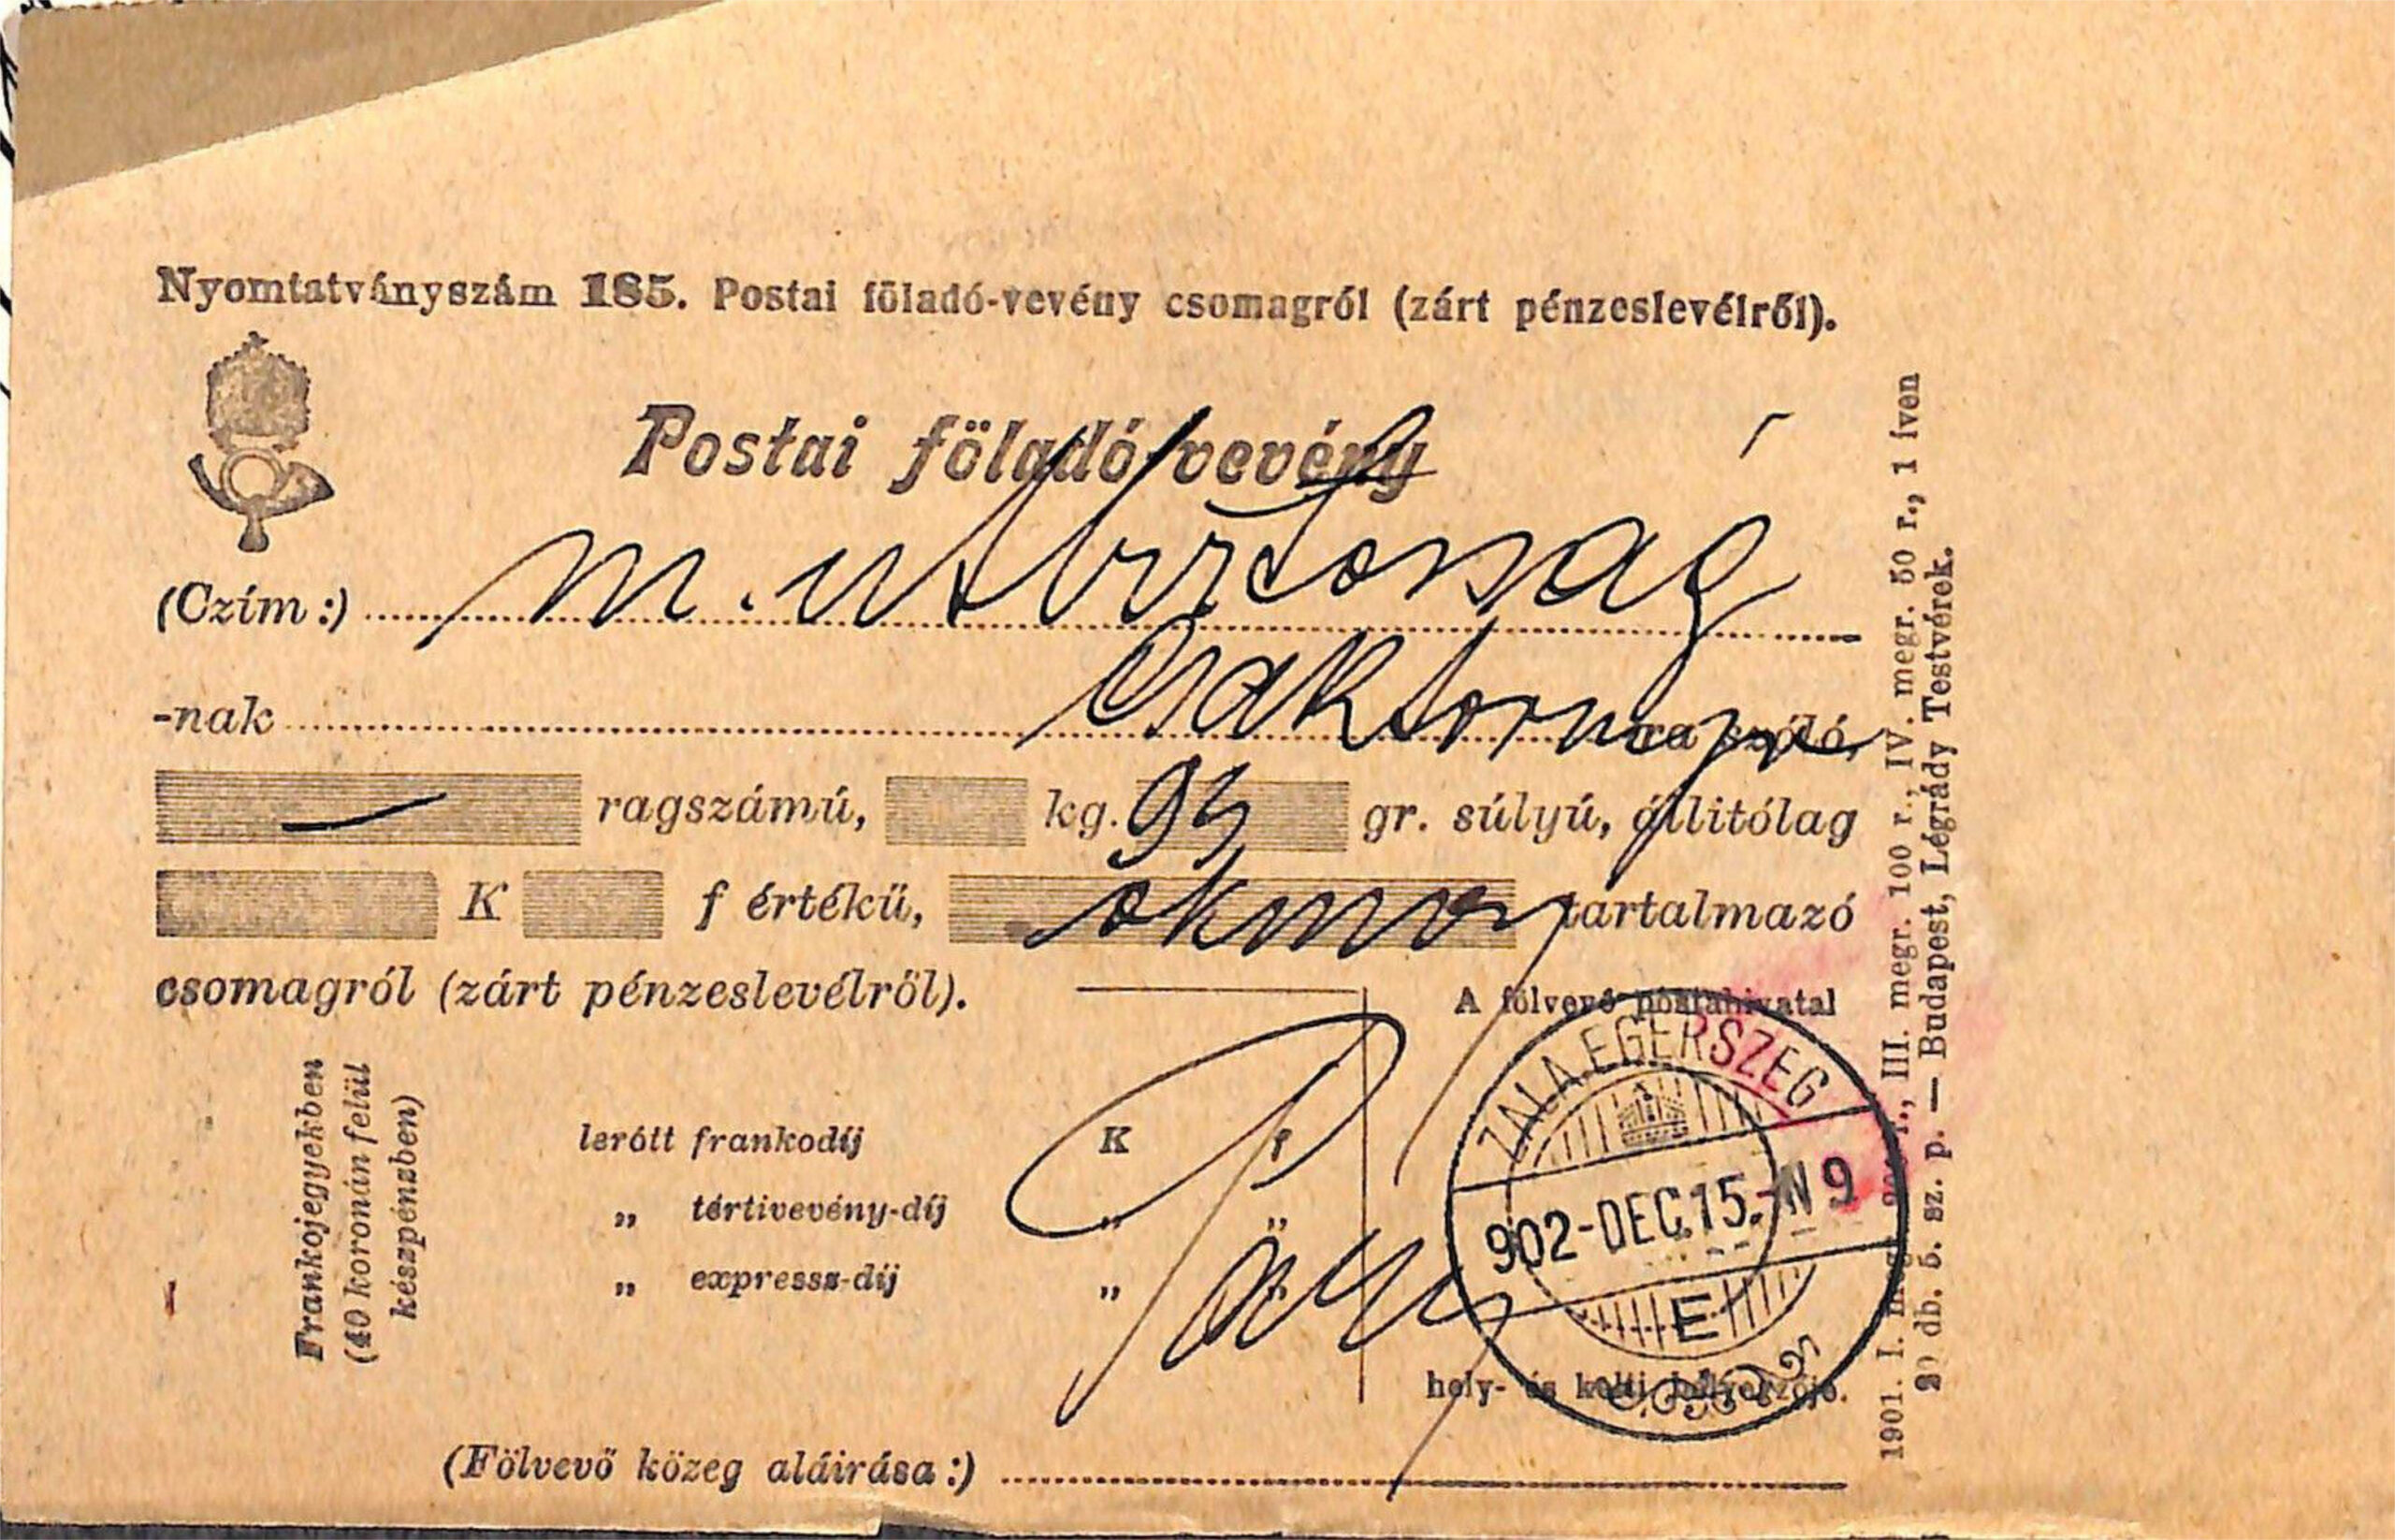 Nyomtatványszám 185. Postai föladó-vevény csomagról (zárt pénzeslevélről).
Postai föladó-vevény
(Czím:) m.
-nak Csáktornya ra szóló,
ragszámú, kg. 95 gr. súlyú, állitólag
K f értékü, okmány tartalmazó
csomagról (zárt pénzeslevélről).
A fölvevő postahivatal
Frankojegyekben
(40 koronán felül
készpénzben)
lerótt frankodíj K f
„ tértivevény-díj „ „
„ express-díj „ „
ZALAEGERSZEG
902-DEC.15.-N9
E
hely- és kelti bélyegzője.
(Fölvevő közeg aláirása:)
1901. I. megr. 200 r., III. megr. 100 r., IV. megr. 50 r., 1 íven
20 db. 5. sz. p. — Budapest, Légrády Testvérek.